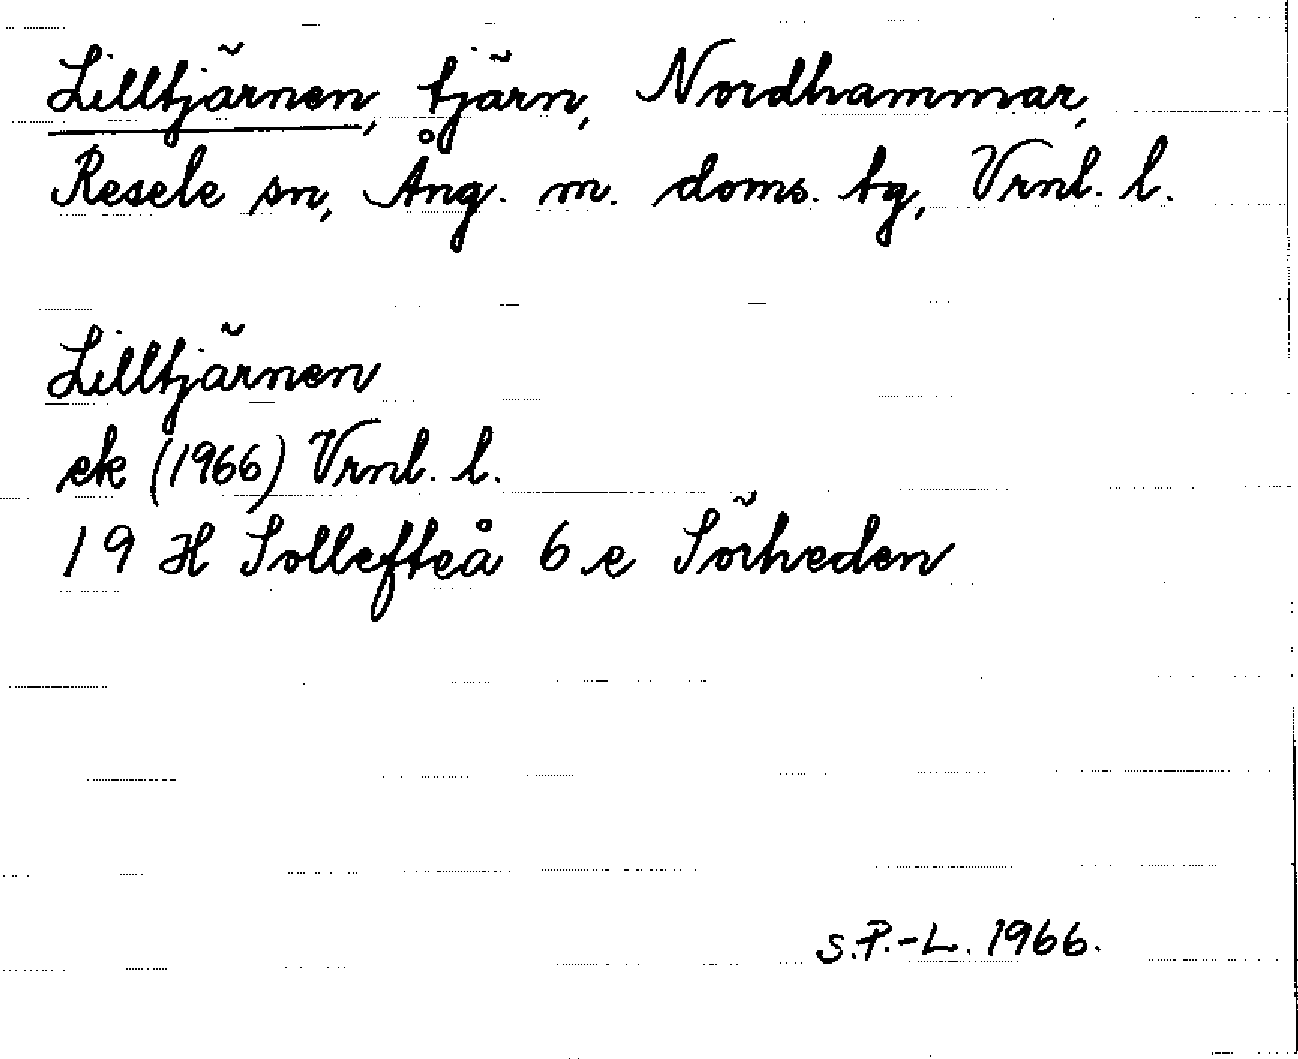 Lilltjärnen, tjärn, Nordhammar,
Resele sn, Ång. m. doms. tg, Vrnl. l.
Lilltjärnen
ek (1966) Vrnl. l.
19 H Sollefteå 6 e Sörheden
S.P.-L. 1966.